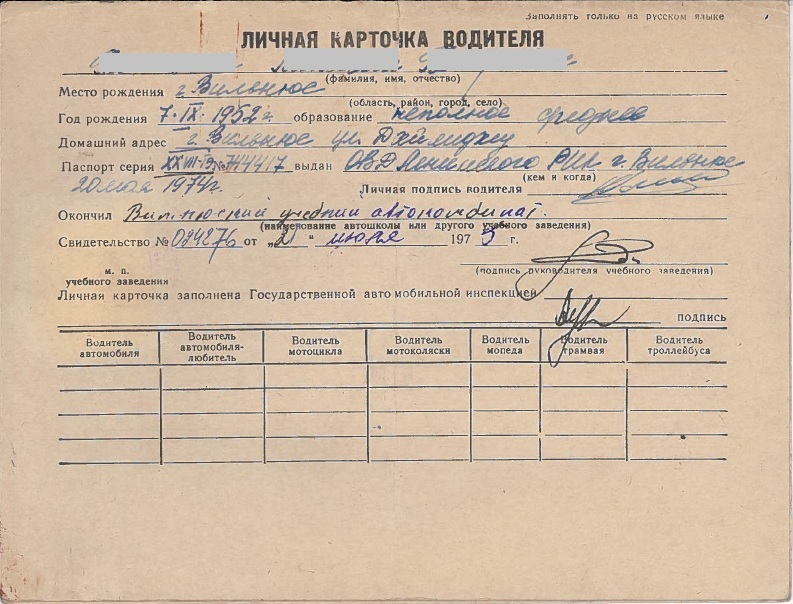 Заполнять только на русском языке
ЛИЧНАЯ КАРТОЧКА ВОДИТЕЛЯ
(фамилия, имя, отчество)
Место рождения г. Вильнюс
(область, район, город, село)
Год рождения 7-IX-1952 г. образование неполное среднее
Домашний адрес г. Вильнюс ул.
Паспорт серия XXVIII-ЛЭ № 744417 выдан ОВД Ленинского РИК г. Вильнюс
(кем и когда)
20 мая 1974 г. Личная подпись водителя
Окончил Вильнюсский учебний автокомбинат.
(наименование автошколы или другого учебного заведения)
Свидетельство № 024276 от „21“ июля 1975 г.
(подпись руководителя учебного заведения)
м. п.
учебного заведения
Личная карточка заполнена Государственной автомобильной инспекцией
подпись
Водитель автомобиля Водитель автомобиля-любитель Водитель мотоцикла Водитель мотоколяски Водитель мопеда Водитель трамвая Водитель троллейбуса